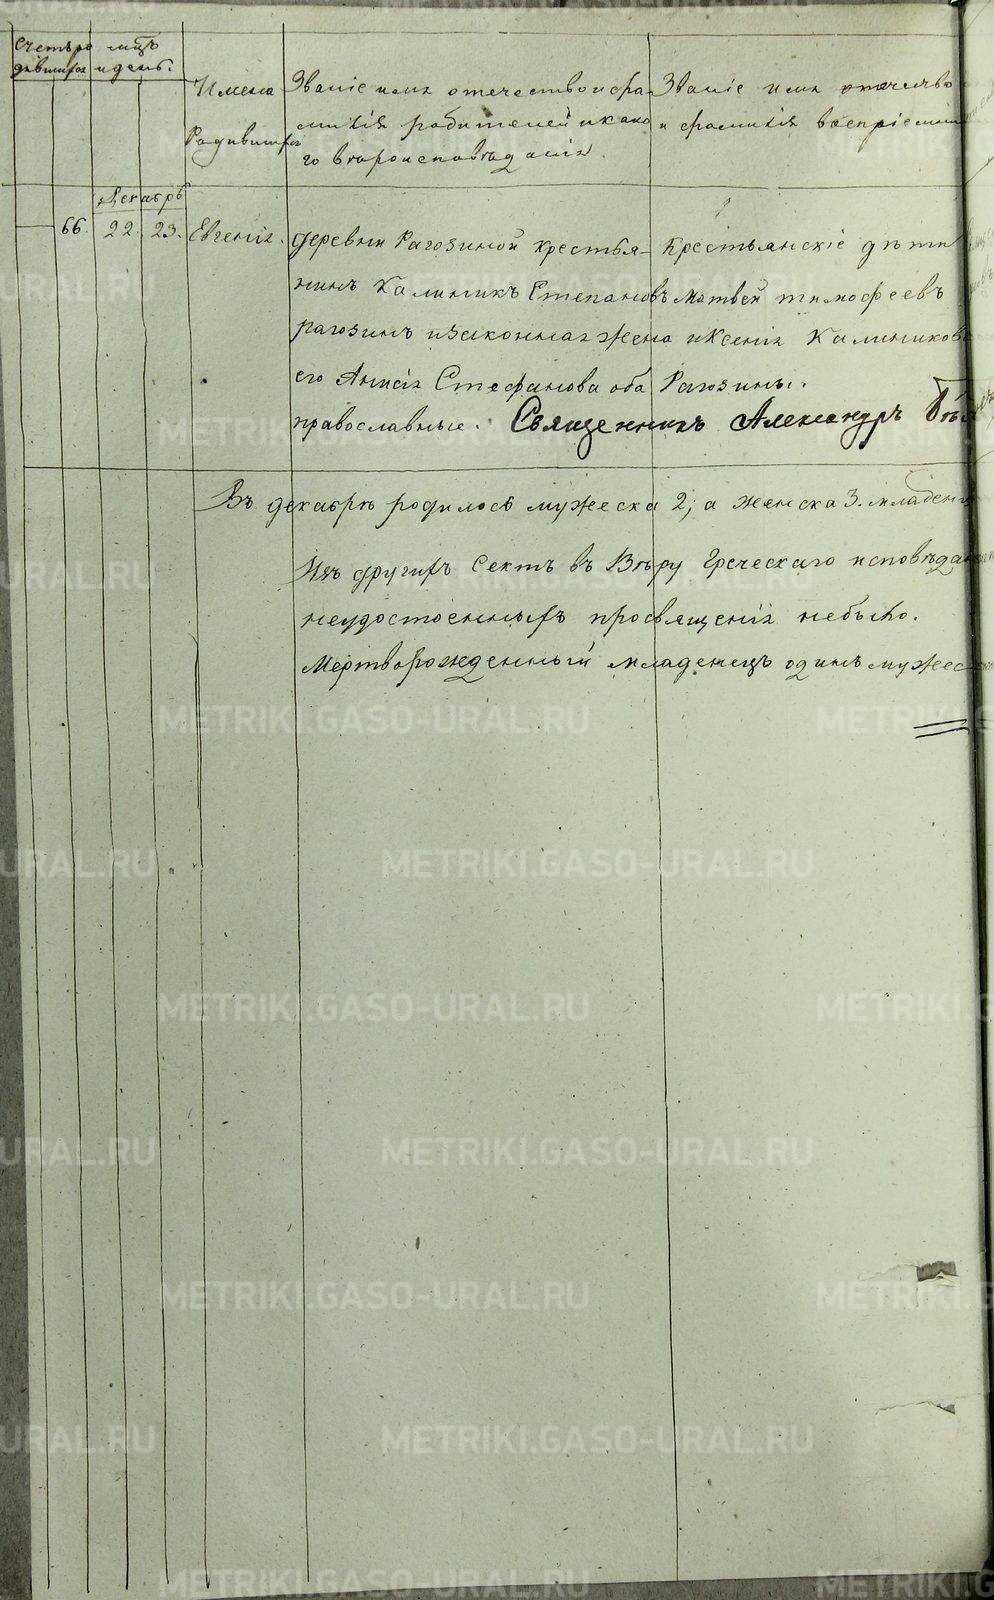 Счетъ ро мцъ
дившихся и день.
Имена
Родившихся
Званіе имя отечество и фа-
милія родителей и како
го вѣроисповѣданія.
Званіе имя отечество
и фамилія воспріемни
Декабрь
66. 22. 23. Евгенія.
деревни Рагозиной крестья-
нинъ Калиникъ Степановъ
рагозинъ и законная жена
его Анисія Стефанова оба
православные.
Крестьянскіе дѣти
Матвей тимофеевъ
и Ксенія Калиникова
Рагозины.
Священникъ Александръ
Въ декабрѣ родилось мужеска 2, а женска 3. младенц
Изъ другихъ Сектъ въ Вѣру Греческаго исповѣдан
неудостоенныхъ просвященія небыло.
Мертворожденный младенецъ одинъ мужес
METRIKI.GASO-URAL.RU